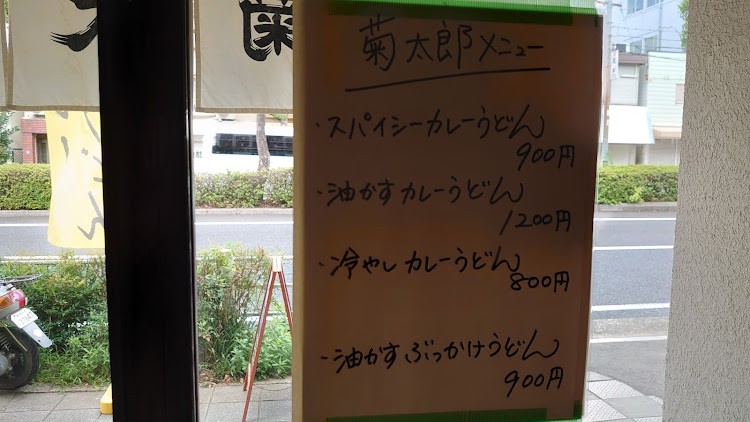 菊
菊太郎メニュー
・スパイシーカレーうどん
900円
・油かすカレーうどん
1200円
・冷やしカレーうどん
800円
・油かすぶっかけうどん
900円